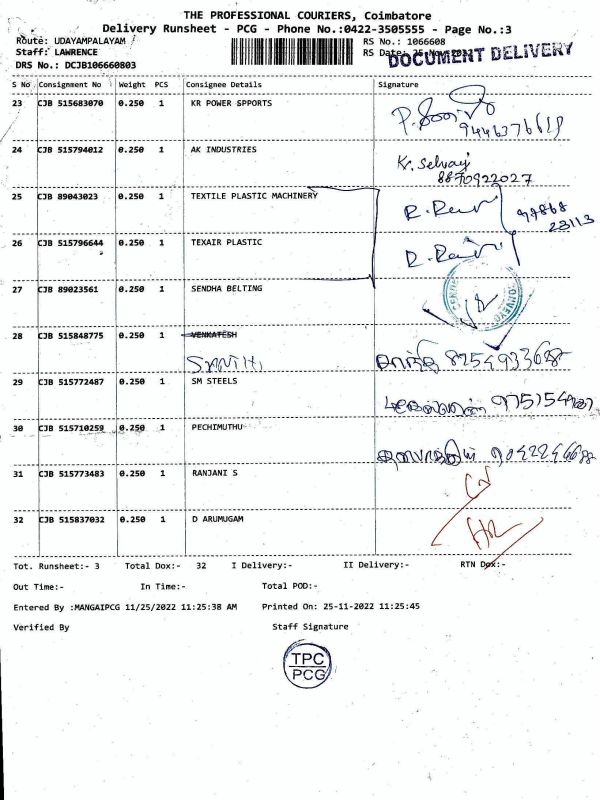 THE PROFESSIONAL COURIERS, Coimbatore
Delivery Runsheet - PCG - Phone No.:0422-3505555 - Page No.:3
Route: UDAYAMPALAYAM
RS No.: 1066608
Staff: LAWRENCE
RS Date: 25 Nov 2022
DOCUMENT DELIVERY
DRS No.: DCJB106660803
S No Consignment No Weight PCS Consignee Details Signature
23 CJB 515683070 0.250 1 KR POWER SPPORTS
9446376618
24 CJB 515794012 0.250 1 AK INDUSTRIES K. Selvaj
8870922027
25 CJB 89043023 0.250 1 TEXTILE PLASTIC MACHINERY 97868
23113
26 CJB 515796644 0.250 1 TEXAIR PLASTIC
27 CJB 89023561 0.250 1 SENDHA BELTING
28 CJB 515848775 0.250 1 VENKATESH
SANTHI 8254933688
29 CJB 515772487 0.250 1 SM STEELS
30 CJB 515710259 0.250 1 PECHIMUTHU
31 CJB 515773483 0.250 1 RANJANI S
32 CJB 515837032 0.250 1 D ARUMUGAM
Tot. Runsheet:- 3 Total Dox:- 32 I Delivery:- II Delivery:- RTN Dox:-
Out Time:- In Time:- Total POD:-
Entered By :MANGAIPCG 11/25/2022 11:25:38 AM Printed On: 25-11-2022 11:25:45
Verified By Staff Signature
TPC
PCG